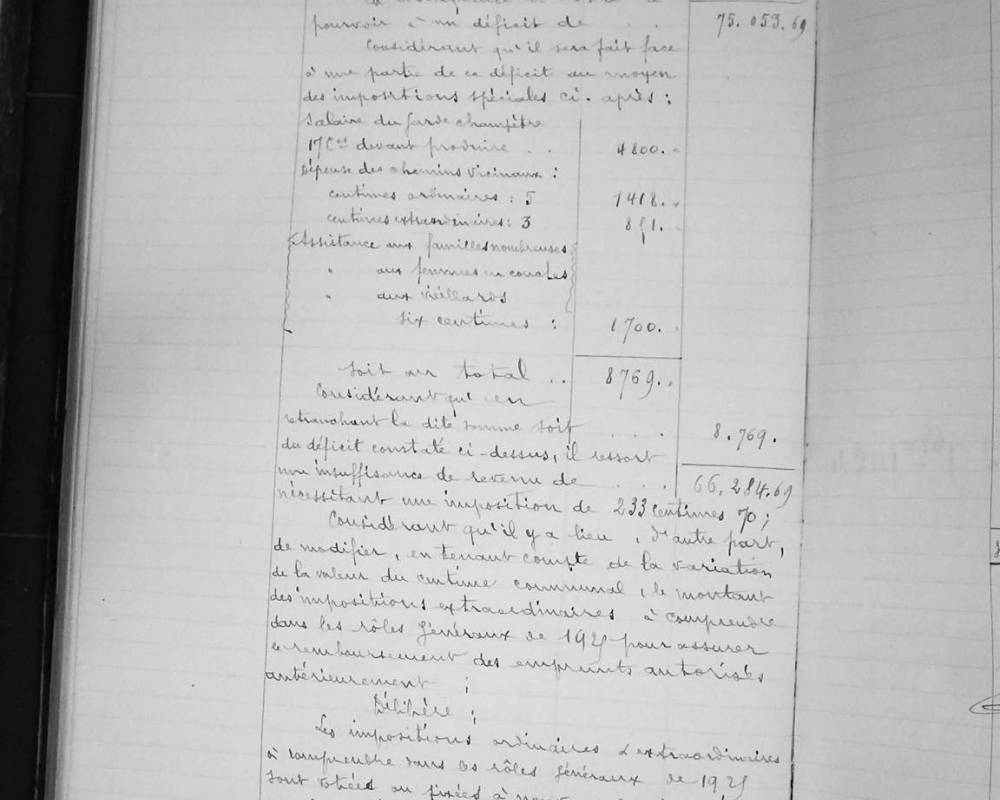 pourvoir à un déficit de . . 75.053.69
Considérant qu'il sera fait face
à une partie de ce déficit au moyen
des impositions spéciales ci-après :
Salaire du Garde champêtre
17 Ces devant produire . . 4800.-
Dépense des chemins vicinaux :
centimes ordinaires : 5 1418.-
centimes extraordinaires : 3 851.-
Assistance aux familles nombreuses
" aux femmes en couches
" aux vieillards
six centimes : 1700.-
soit au total .. 8769.-
Considérant qu'en
retranchant la dite somme soit . . . 8.769.
du déficit constaté ci-dessus, il ressort
une insuffisance de revenu de . . . 66,284.69
nécessitant une imposition de 233 centimes 70 ;
Considérant qu'il y a lieu, d'autre part,
de modifier, en tenant compte de la variation
de la valeur du centime communal, le montant
des impositions extraordinaires à comprendre
dans les rôles généraux de 1925 pour assurer
le remboursement des emprunts autorisés
antérieurement ;
Délibère ;
Les impositions ordinaires & extraordinaires
à comprendre dans les rôles généraux de 1925
sont votées ou fixées à